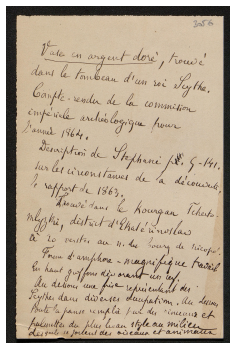 3056
Vase en argent doré, trouvé
dans le tombeau d'un roi Scythe.
Compte-rendu de la commission
impériale archéologique pour
l'année 1864.
Description de Stephani p. 9-141.
sur les circonstances de la découverte
le rapport de 1863.
Trouvé dans le Kourgan Tchertomlyzkì, district d'Ekatérinoslaw
à 20 verstes au n. du bourg de Nicopol.
Forme d'amphore - magnifique travail
En haut griffons dévorant un cerf.
Au dessous une frise représentant des
Scythes dans diverses occupations. Au dessous
toute la panse remplie
palmettes du plus beau style au milieu
desquels se jouent des oiseaux et animaux